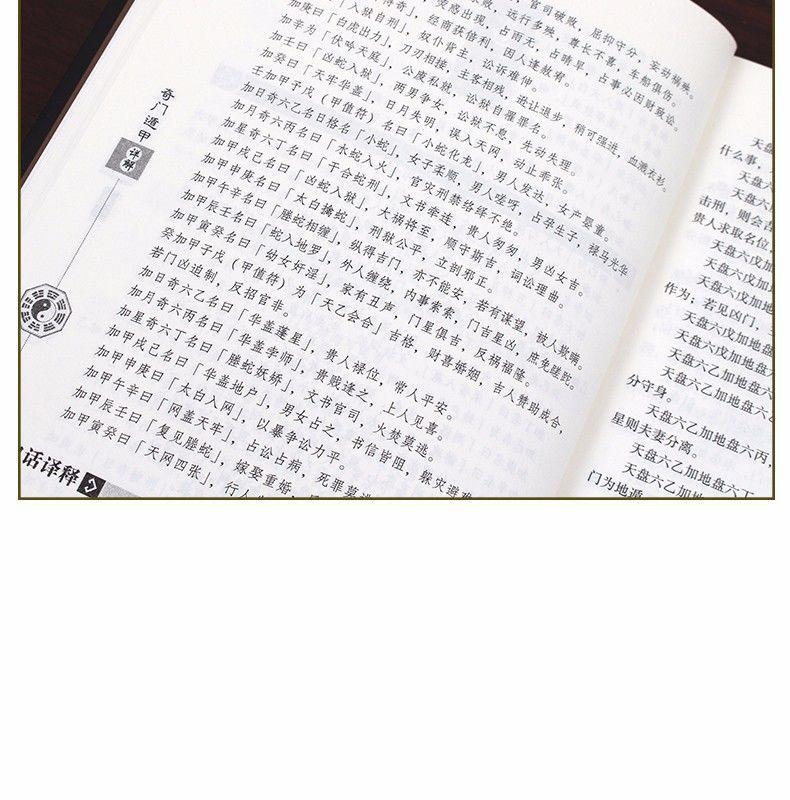 官司破败，屈抑守分，妄动祸殃。
败，远行多殃，尊长不喜，车船俱伤。
荧惑出现，占雨无，占晴旱，占事必因财致讼。
奇」，经商获倍利，囚人逢赦宥。
「入狱自刑」，奴仆背主，讼诉难伸。
加庚曰「白虎出力」，刀刃相接，主客相残，逊让退步，稍可强进，血溅衣衫。
加辛为「伏吟天庭」，公废私就，讼狱自罹罪名。
加壬曰「凶蛇入狱」，两男争女，讼狱不息，先动失理。
加癸曰「天牢华盖」，日月失明，误入天网，动止乖张。
壬加甲子戊（甲值符）名曰「小蛇化龙」，男人发达，女产婴童。
加日奇六乙名日格名「小蛇」，女子柔顺，男人嗟呀，占孕生子，禄马光华
加月奇六丙名曰「水蛇入火」，官灾刑禁络绎不绝。
加星奇六丁名曰「干合蛇刑」，文书牵连，贵人匆匆，男凶女吉。
加甲戌己名曰「凶蛇入狱」，大祸将至，顺守斯吉，词讼理曲。
加甲申庚名曰「太白擒蛇」，刑狱公平，立剖邪正。
加甲午辛名曰「螣蛇相缠」，纵得吉门，亦不能安，若有谋望，被人欺瞒。
加甲辰壬名曰「蛇入地罗」，外人缠绕，内事索索，门吉星凶，庶免蹉跎。
加甲寅癸名曰「幼女奸淫」，家有丑声，门星俱吉，反祸福隆。
癸加甲子戊（甲值符）为「天乙会合」吉格，财喜婚姻，吉人赞助成合，
若门凶迫制，反招官非。
加日奇六乙名曰「华盖蓬星」，贵人禄位，常人平安。
加月奇六丙名曰「华盖学师」，贵贱逢之，上人见喜。
加星奇六丁名曰「螣蛇妖娇」，文书官司，火焚莫逃。
加甲戌己名曰「华盖地户」，男女占之，书信皆阻，躲灾避难
加甲申庚曰「太白入网」，以暴争讼力平。
加甲午辛曰「网盖天牢」，占讼占病，死罪莫逃
加甲辰壬曰「复见螣蛇」，嫁娶重婚，
加甲寅癸曰「天网四张」，行人
话译释
奇门遁甲
详解
天盘
什么事，
天盘六
天盘六戊
击刑，则会
贵人求取名位，
天盘六戊加
天盘六戊加地
作为；若见凶门，
天盘六戊加地盘
天盘六乙加地盘
天盘六乙加地盘六
分守身。
天盘六乙加地盘六丙，
星则夫妻分离。
天盘六乙加地盘六丁
门为地遁